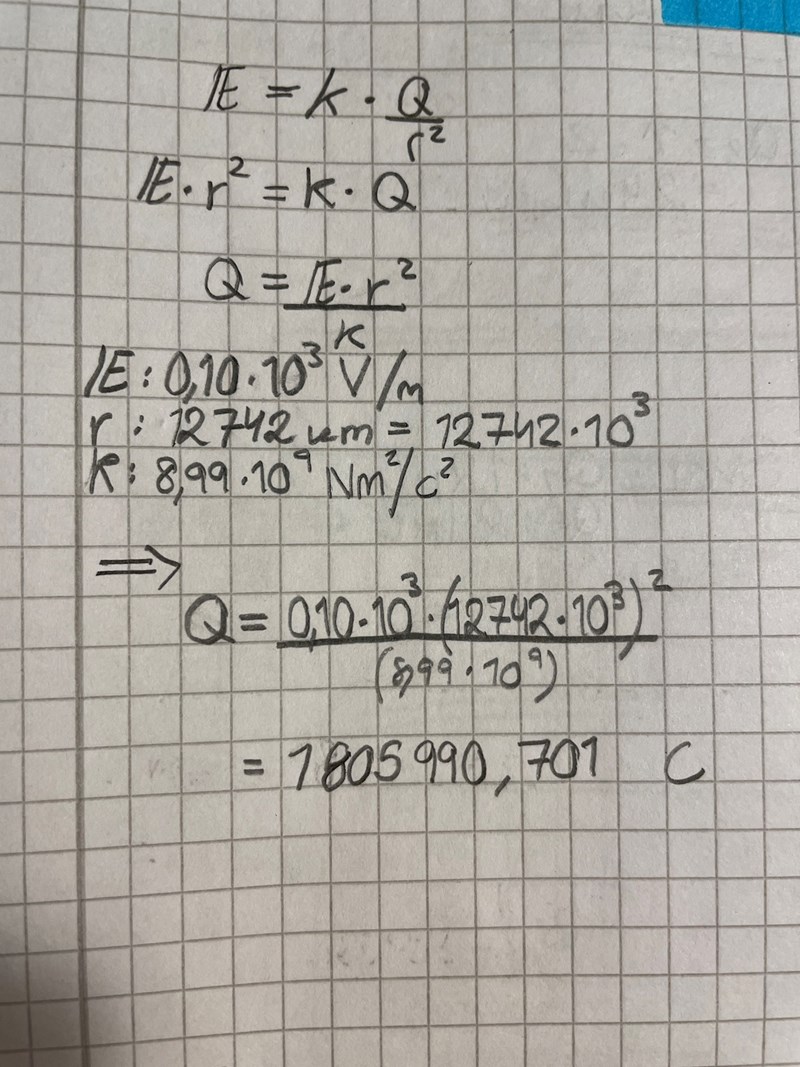 E = k · Q/r²
E · r² = k · Q
Q = E · r²/k
E : 0,10 · 10³ V/m
r : 12742 km = 12742 · 10³
k : 8,99 · 10⁹ Nm²/c²
⇒
Q = 0,10 · 10³ · (12742 · 10³)²/(8,99 · 10⁹)
= 1805990,701 C